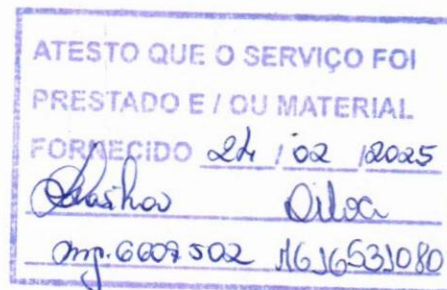 ATESTO QUE O SERVIÇO FOI
PRESTADO E / OU MATERIAL
FORNECIDO 24 / 02 / 2025
Silva
mp. 6607502 1616531080